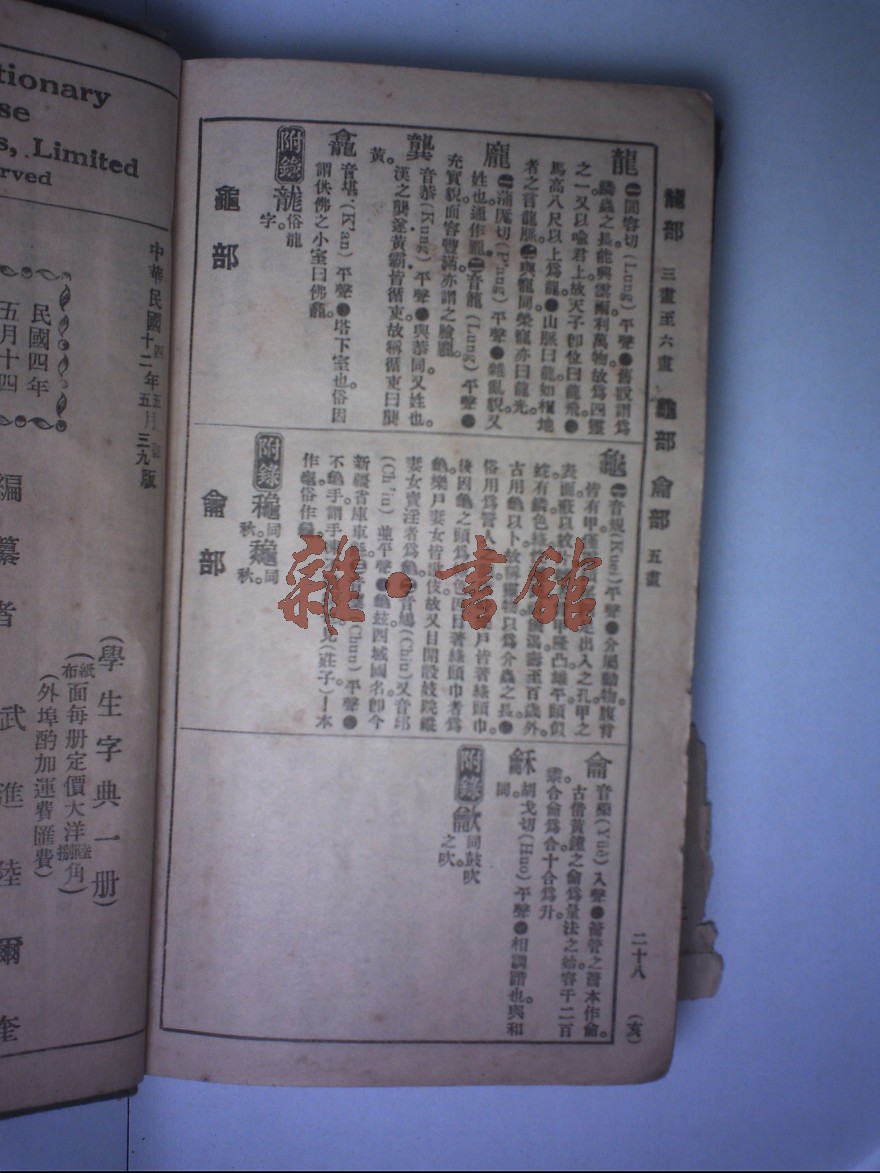 龍部 三畫至六畫 龜部 龠部 五畫
二十八 (亥)
龍 ㊀閭容切(Lung)平聲●舊說謂爲
鱗蟲之長能興雲雨利萬物故爲四靈
之一又以喻君上故天子卽位曰龍飛●
馬高八尺以上爲龍●山脈曰龍如稱地
者之言龍脈㊁與寵同榮寵亦曰龍光
龐 ㊀蒲厖切(P'ang)平聲●雜亂貌又
姓也通作龎㊁音龍(Lung)平聲●
充實貌面容豐滿亦謂之臉龐
龔 音恭(Kung)平聲●與恭同又姓也
漢之龔遂黃霸皆循吏故稱循吏曰龔
黃
龕 音堪(K'an)平聲●塔下室也俗因
謂供佛之小室曰佛龕
附錄 龍俗龍
字
龜部
龜 ㊀音規(Kui)平聲●介屬動物腹背
皆有甲 出入之孔甲之
表面 隆凸雄平頭似
蛇有鱗色 壽至百歲外
古用龜以卜故 以爲介蟲之長●
俗用爲詈人 戶皆著綠頭巾
後因龜之頭爲 色四目著綠頭巾者爲
龜樂戶妻女皆 伎故又目開設妓院縱
妻女賣淫者爲龜㊁音鳩(Chiu)又音邱
(Ch'iu)並平聲●龜玆西域國名卽今
新疆省庫車縣 (Chun)平聲●
不龜手謂手 見(莊子)!本
作龜俗作
附錄 龝同
秋 同
秋
龠部
龠 音藥(Yüe)入聲●籥管之籥本作龠
古借黃鐘之龠爲量法之始容千二百
黍合龠爲合十合爲升
龢 胡戈切(Huo)平聲●相調諧也與和
同
附錄 龡同鼓吹
之吹
tionary
se
s, Limited
erved
中華民國十二年五月三九版
民國四年
五月十四
(學生字典一册)
紙布面每册定價大洋 角)
(外埠酌加運費匯費)
編纂者 武進陸爾奎
雜·書館